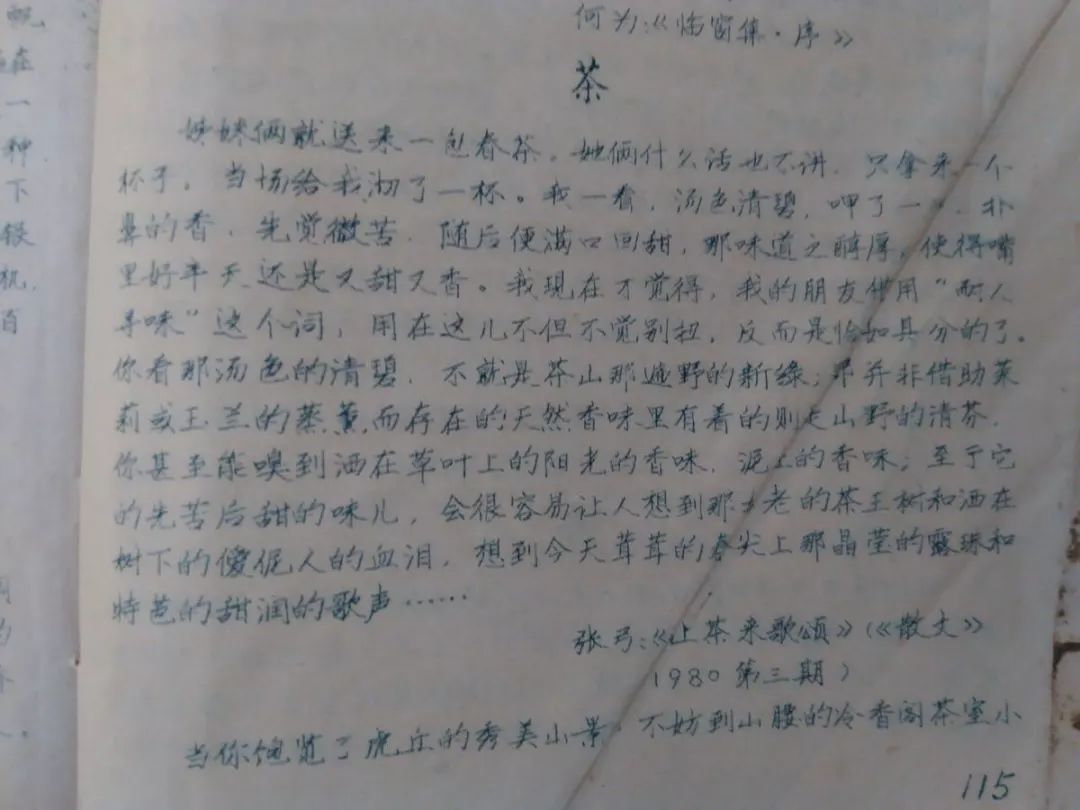 何为:《临窗集·序》
茶
姊妹俩就送来一包春茶。她俩什么话也不讲，只拿来一个
杯子，当场给我沏了一杯。我一看，汤色清碧，呷了一口，扑
鼻的香，先觉微苦，随后便满口回甜，那味道之醇厚，使得嘴
里好半天还是又甜又香。我现在才觉得，我的朋友借用“耐人
寻味”这个词，用在这儿不但不觉别扭，反而是恰如其分的了。
你看那汤色的清碧，不就是茶山那遍野的新绿；那并非借助茉
莉或玉兰的蒸薰而存在的天然香味里有着的则是山野的清芬，
你甚至能嗅到洒在草叶上的阳光的香味，泥土的香味；至于它
的先苦后甜的味儿，会很容易让人想到那古老的茶王树和洒在
树下的傻伲人的血泪，想到今天茸茸的春尖上那晶莹的露珠和
特芭的甜润的歌声……
张弓:《让茶来歌颂》(《散文》
1980第三期)
当你饱览了虎丘的秀美山景，不妨到山腰的冷香阁茶室小
115
视
在
一
种
下
银
机
百